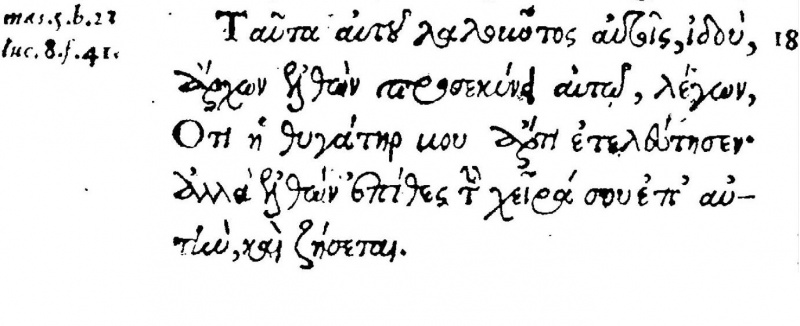 mar.5.b.22 Ταῦτα αὐτοῦ λαλοῦντος αὐτοῖς, ἰδού, 18
luc.8.f.41. ἄρχων ἐλθὼν προσεκύνει αὐτῷ, λέγων,
Οτι ἡ θυγάτηρ μου ἄρτι ἐτελεύτησεν·
ἀλλὰ ἐλθὼν ἐπίθες τὴν χεῖρά σου ἐπ’ αὐ-
τὴν, καὶ ζήσεται.